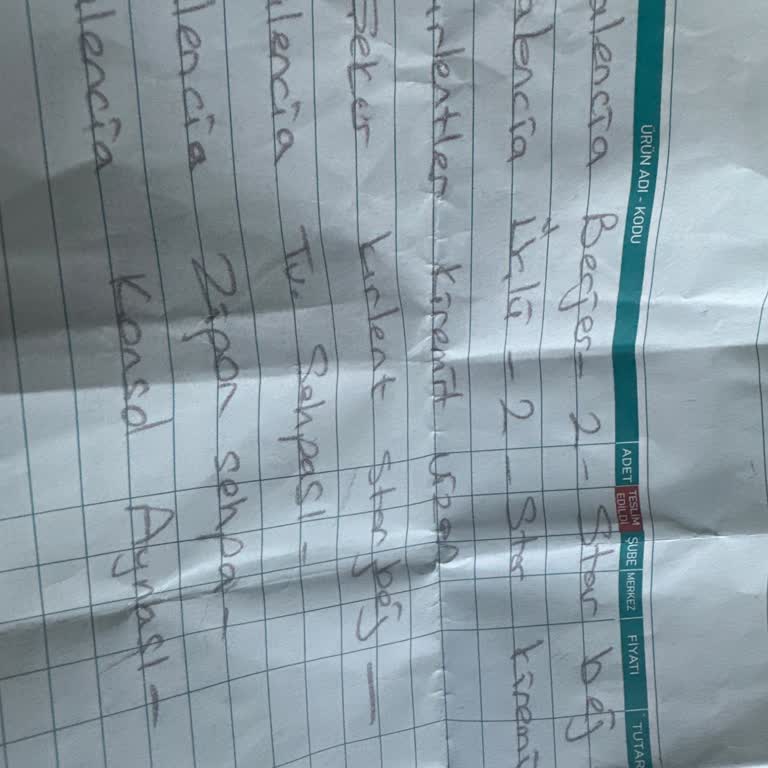 ÜRÜN ADI - KODU ADET TESLİM EDİLDİ ŞUBE MERKEZ FİYATI TUTAR
alencia Berjer - 2 - Star bej
alencia İkli - 2 - Star kiremi
ırlentler kiremit
Şeker kırlent Star bej —
alencia Tv. Sehpası -
lencia Zigon sehpa -
lencia Konsol Aynası -